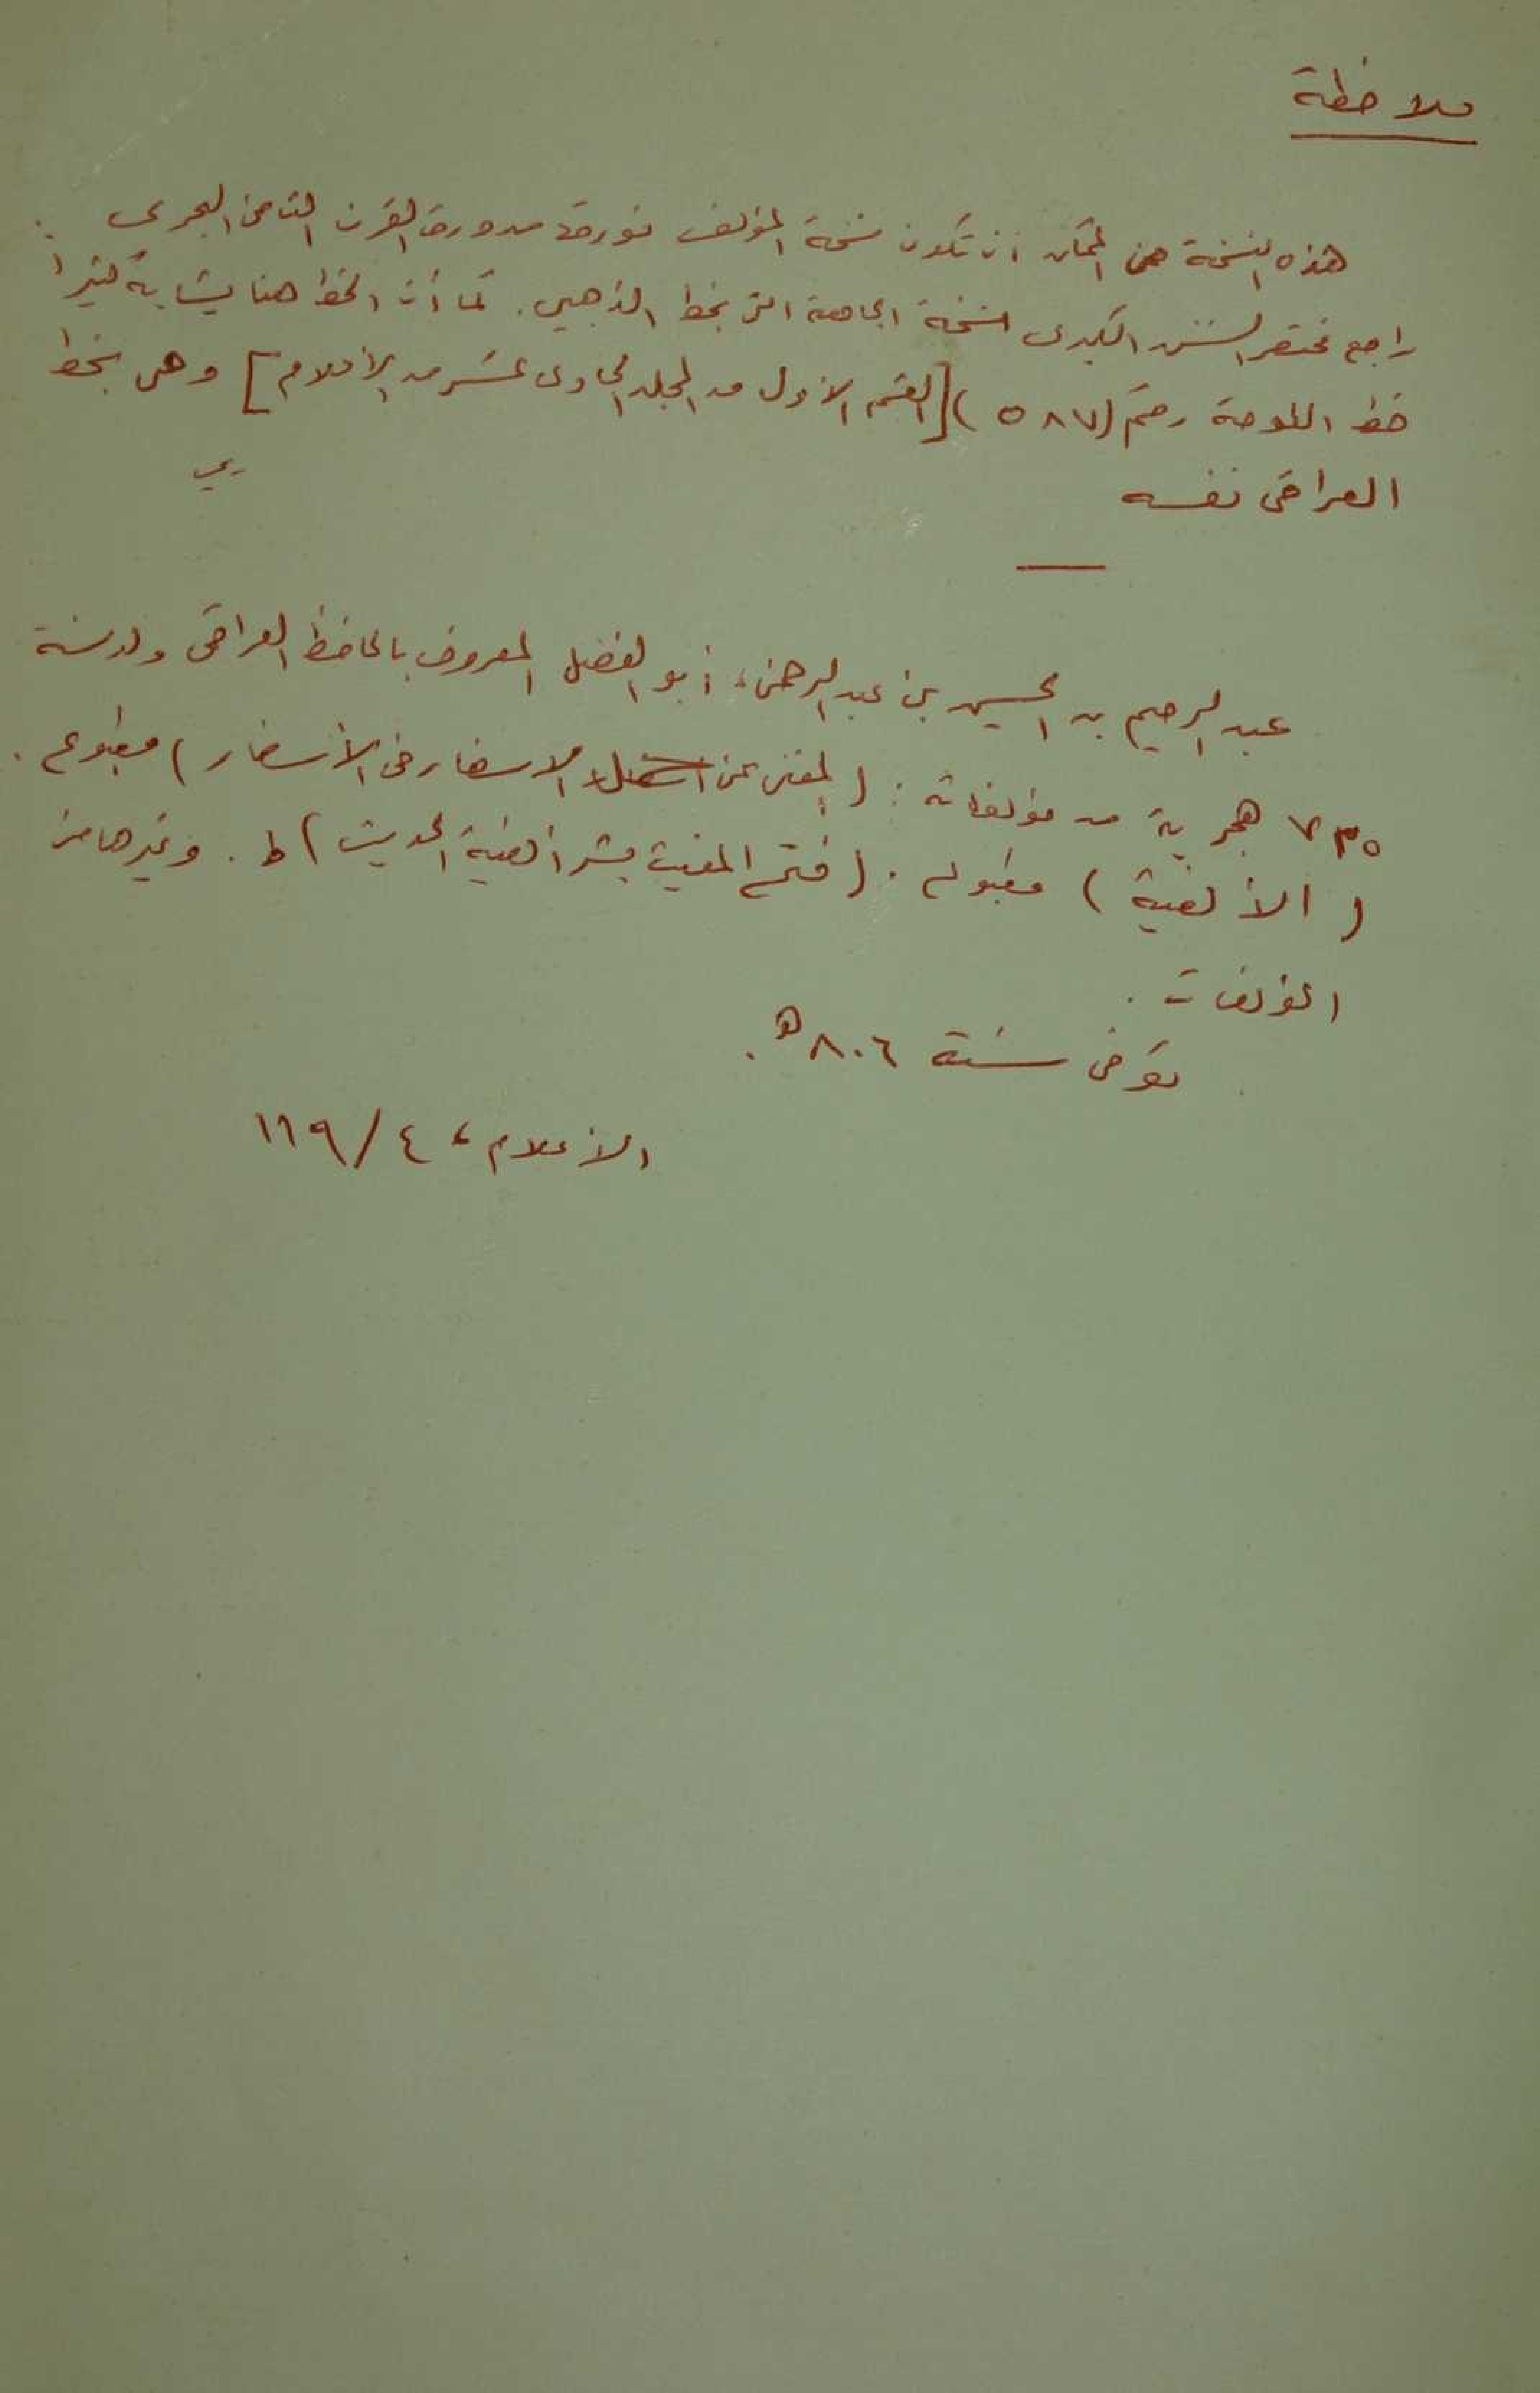 ملاحظة
هذه النسخة من الممكن أن تكون نسخة المؤلف فورقه من ورق القرن الثامن الهجرى .
راجع مختصر السنن الكبرى نسخة الجامعة التى بخط الذهبي . كما أن الخط هنا يشابه كثيراً
خط اللوحة رقم (٥٨٧) [القسم الأول من المجلد الحادى عشر من الأعلام] وهى بخط
العراقى نفسه
عبد الرحيم بن الحسين بن عبد الرحمن، أبو الفضل المعروف بالحافظ العراقى ولد سنة
٧٢٥ هجرية من مؤلفاته : (المغنى عن حمل الاسفار فى الأسفار) مطبوع .
(الألفية) مطبوع . (فتح المغيث بشر ألفية الحديث) ط . وغيرها من
المؤلفات .
توفى سنة ٨٠٦ هـ .
الأعلام، ٤/١١٩